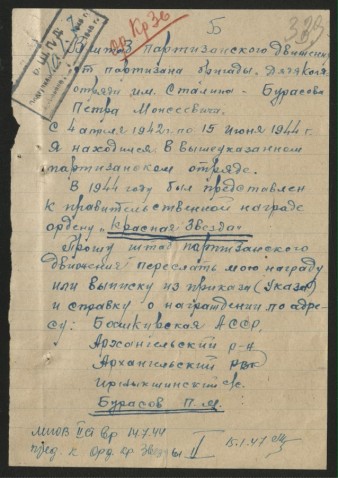 до Кр Зв
Б
323
В штаб партизанского движения
от партизана бригады Дяди Коли
отряда им. Сталина - Бурасова
Петра Моисеевича.
С 4 апреля 1942 г. по 15 июня 1944 г.
Я находился в вышеуказанном
партизанском отряде.
В 1944 году был представлен
к правительственной награде
ордену „Красная Звезда"
Прошу штаб партизанского
движения переслать мою награду
или выписку из приказа (Указа)
и справку о награждении по адре-
су: Башкирская АССР,
Архангельский р-н
Архангельский РВК
с/с.
Бурасов П.М.
14.7.44
пред. к орд. Кр Звезды II
15.1.47